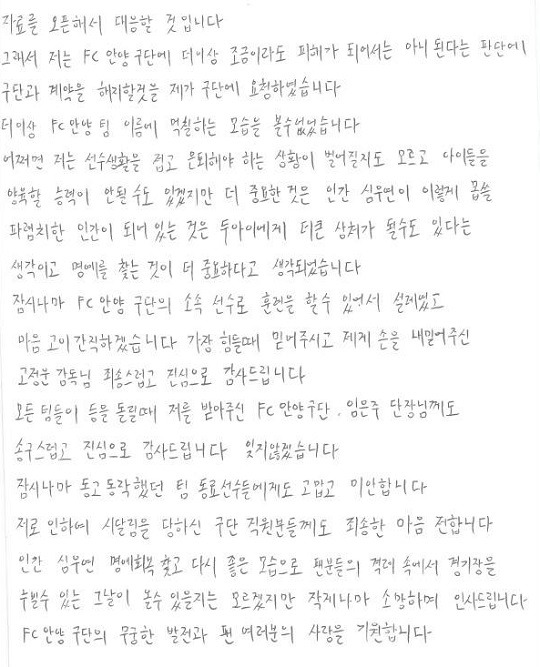 자료를 오픈해서 대응할 것입니다
그래서 저는 FC 안양 구단에 더이상 조금이라도 피해가 되어서는 아니 된다는 판단에
구단과 계약을 해지할것을 제가 구단에 요청하였습니다
더이상 FC 안양 팀 이름에 먹칠하는 모습을 볼수없었습니다
어쩌면 저는 선수생활을 접고 은퇴해야 하는 상황이 벌어질지도 모르고 아이들을
양육할 능력이 안될 수도 있겠지만 더 중요한 것은 인간 심우연이 이렇게 몹쓸
파렴치한 인간이 되어 있는 것은 두아이에게 더큰 상처가 될수도 있다는
생각이고 명예를 찾는 것이 더 중요하다고 생각되었습니다
잠시나마 FC 안양 구단의 소속 선수로 훈련을 할 수 있어서 설레였고
마음 고이 간직하겠습니다 가장 힘들때 믿어주시고 제게 손을 내밀어주신
고정운 감독님 죄송스럽고 진심으로 감사드립니다
모든 팀들이 등을 돌릴때 저를 받아주신 FC 안양구단, 임은주 단장님께도
송구스럽고 진심으로 감사드립니다 잊지않겠습니다
잠시나마 동고동락했던 팀 동료선수들에게도 고맙고 미안합니다
저로 인하여 시달림을 당하신 구단 직원분들께도 죄송한 마음 전합니다
인간 심우연 명예회복 찾고 다시 좋은 모습으로 팬분들의 격려 속에서 경기장을
누빌수 있는 그날이 올수 있을지는 모르겠지만 작게나마 소망하며 인사드립니다
FC 안양 구단의 무궁한 발전과 팬 여러분의 사랑을 기원합니다